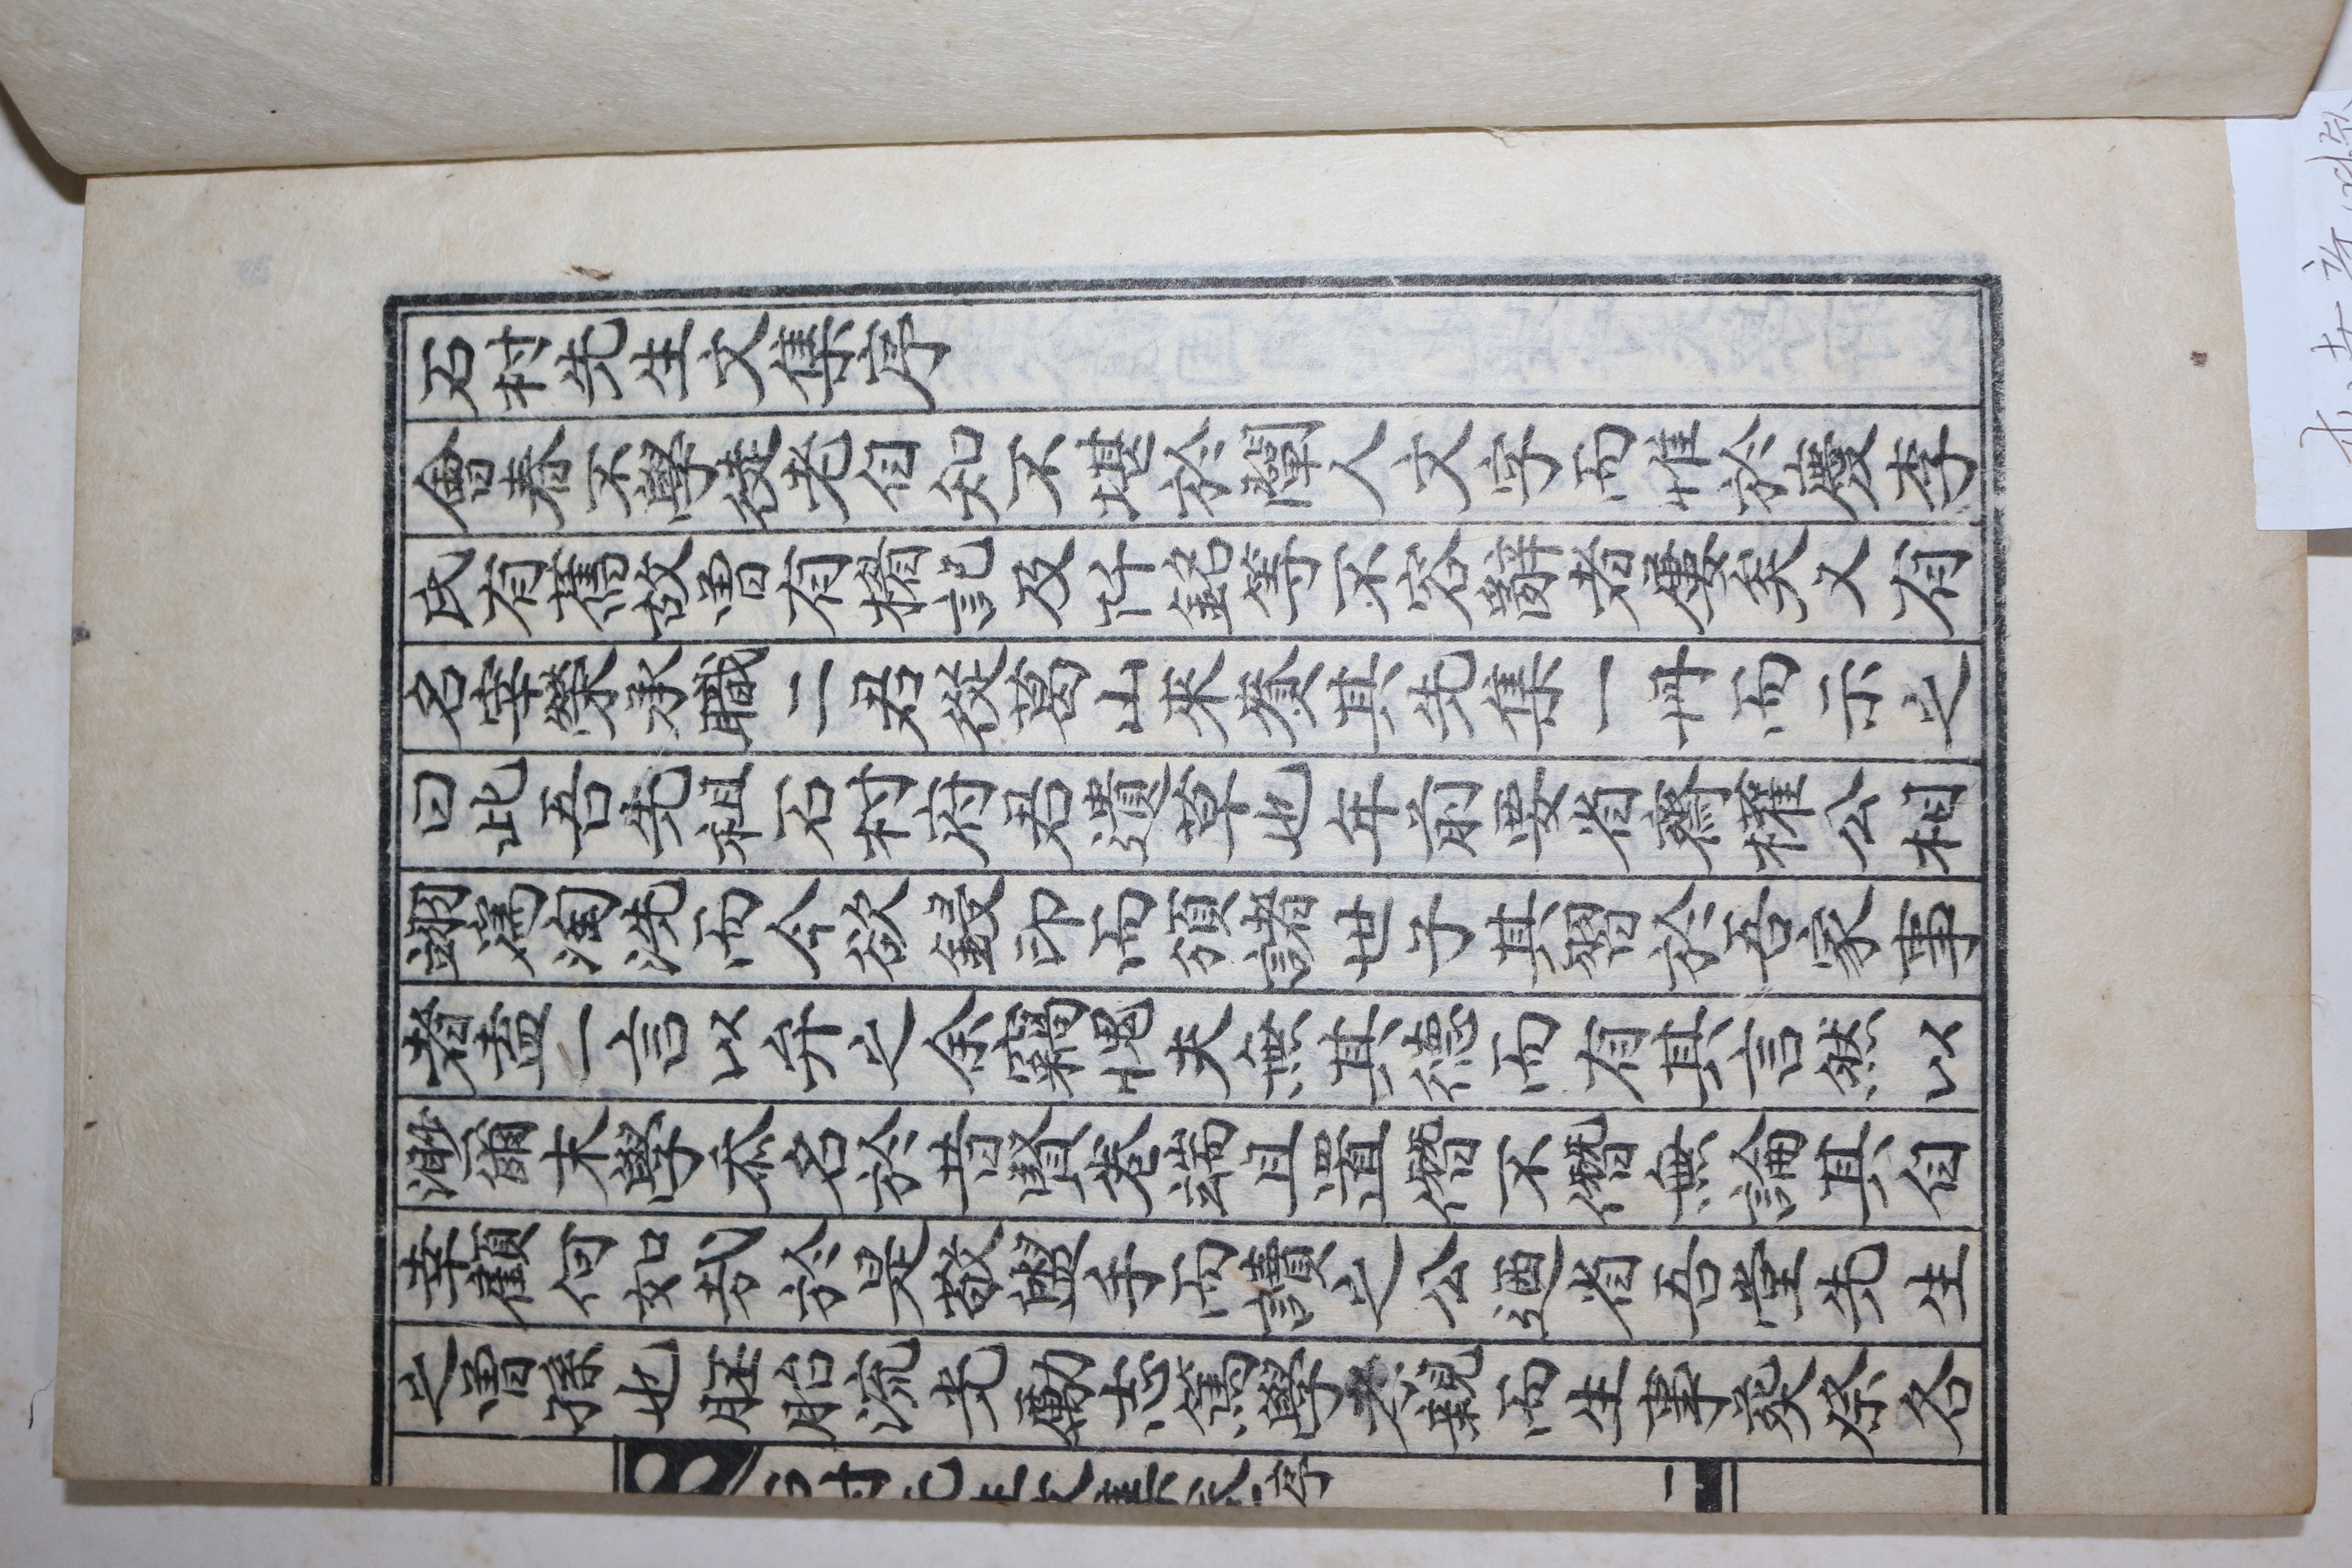 石村先生文集序
會春不學徒老自知不堪於闡人文字而惟於慶李
氏有舊故曾有楣記及阡銘等不容辭者屢矣又有
名宰榮承職二君從葛山來賚其先集一冊而示之
曰此吾先祖石村府君遺草也年前要省齋權公相
翊爲淘洗而今欲鋟印而頒諸世子其習於吾家事
者盍一言以弁之余竊愧夫無其德而有其言然以
渺爾末學忝名於昔賢卷端且置僭不僭無論其自
幸顧何如哉於是敬盥手而讀之公迺省吾堂先生
之曾孫也胚胎流光勵志篤學孝親而生事葬祭各
石村先生文集 序 一